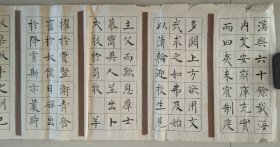 漢興六十餘載海
內艾安府庫充實
而四夷未賓制度
多闕上方欲用文
武求之如弗及始
以蒲輪迎枚生見
主父而歎息羣士
慕嚮異人並出卜
式拔於芻牧羊
擢於賈豎衛青
奮於奴僕日磾出
於降虜斯亦曩時
版築飯牛之朋已